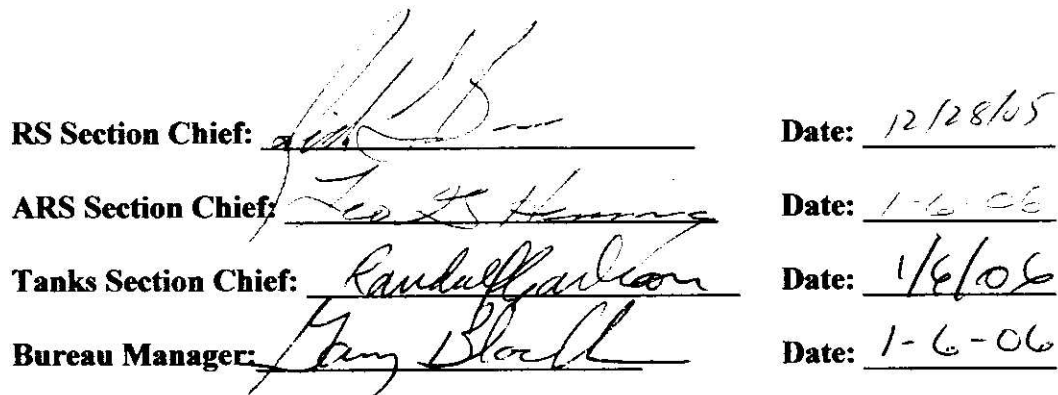 RS Section Chief: Date: 12/28/05
ARS Section Chief: Leo G Henning Date: 1-6-06
Tanks Section Chief: Randall Carlson Date: 1/6/06
Bureau Manager: Gary Blackburn Date: 1-6-06